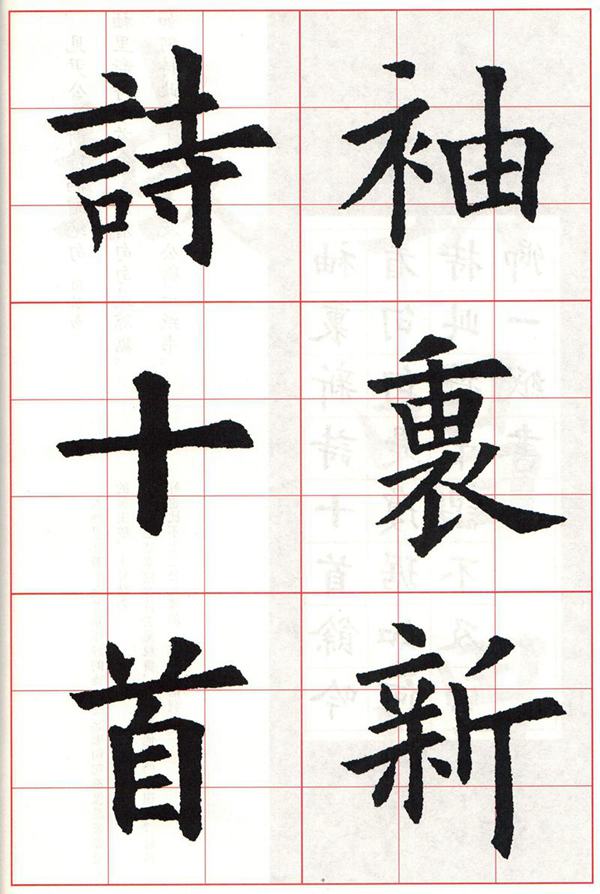 袖裏新
詩十首